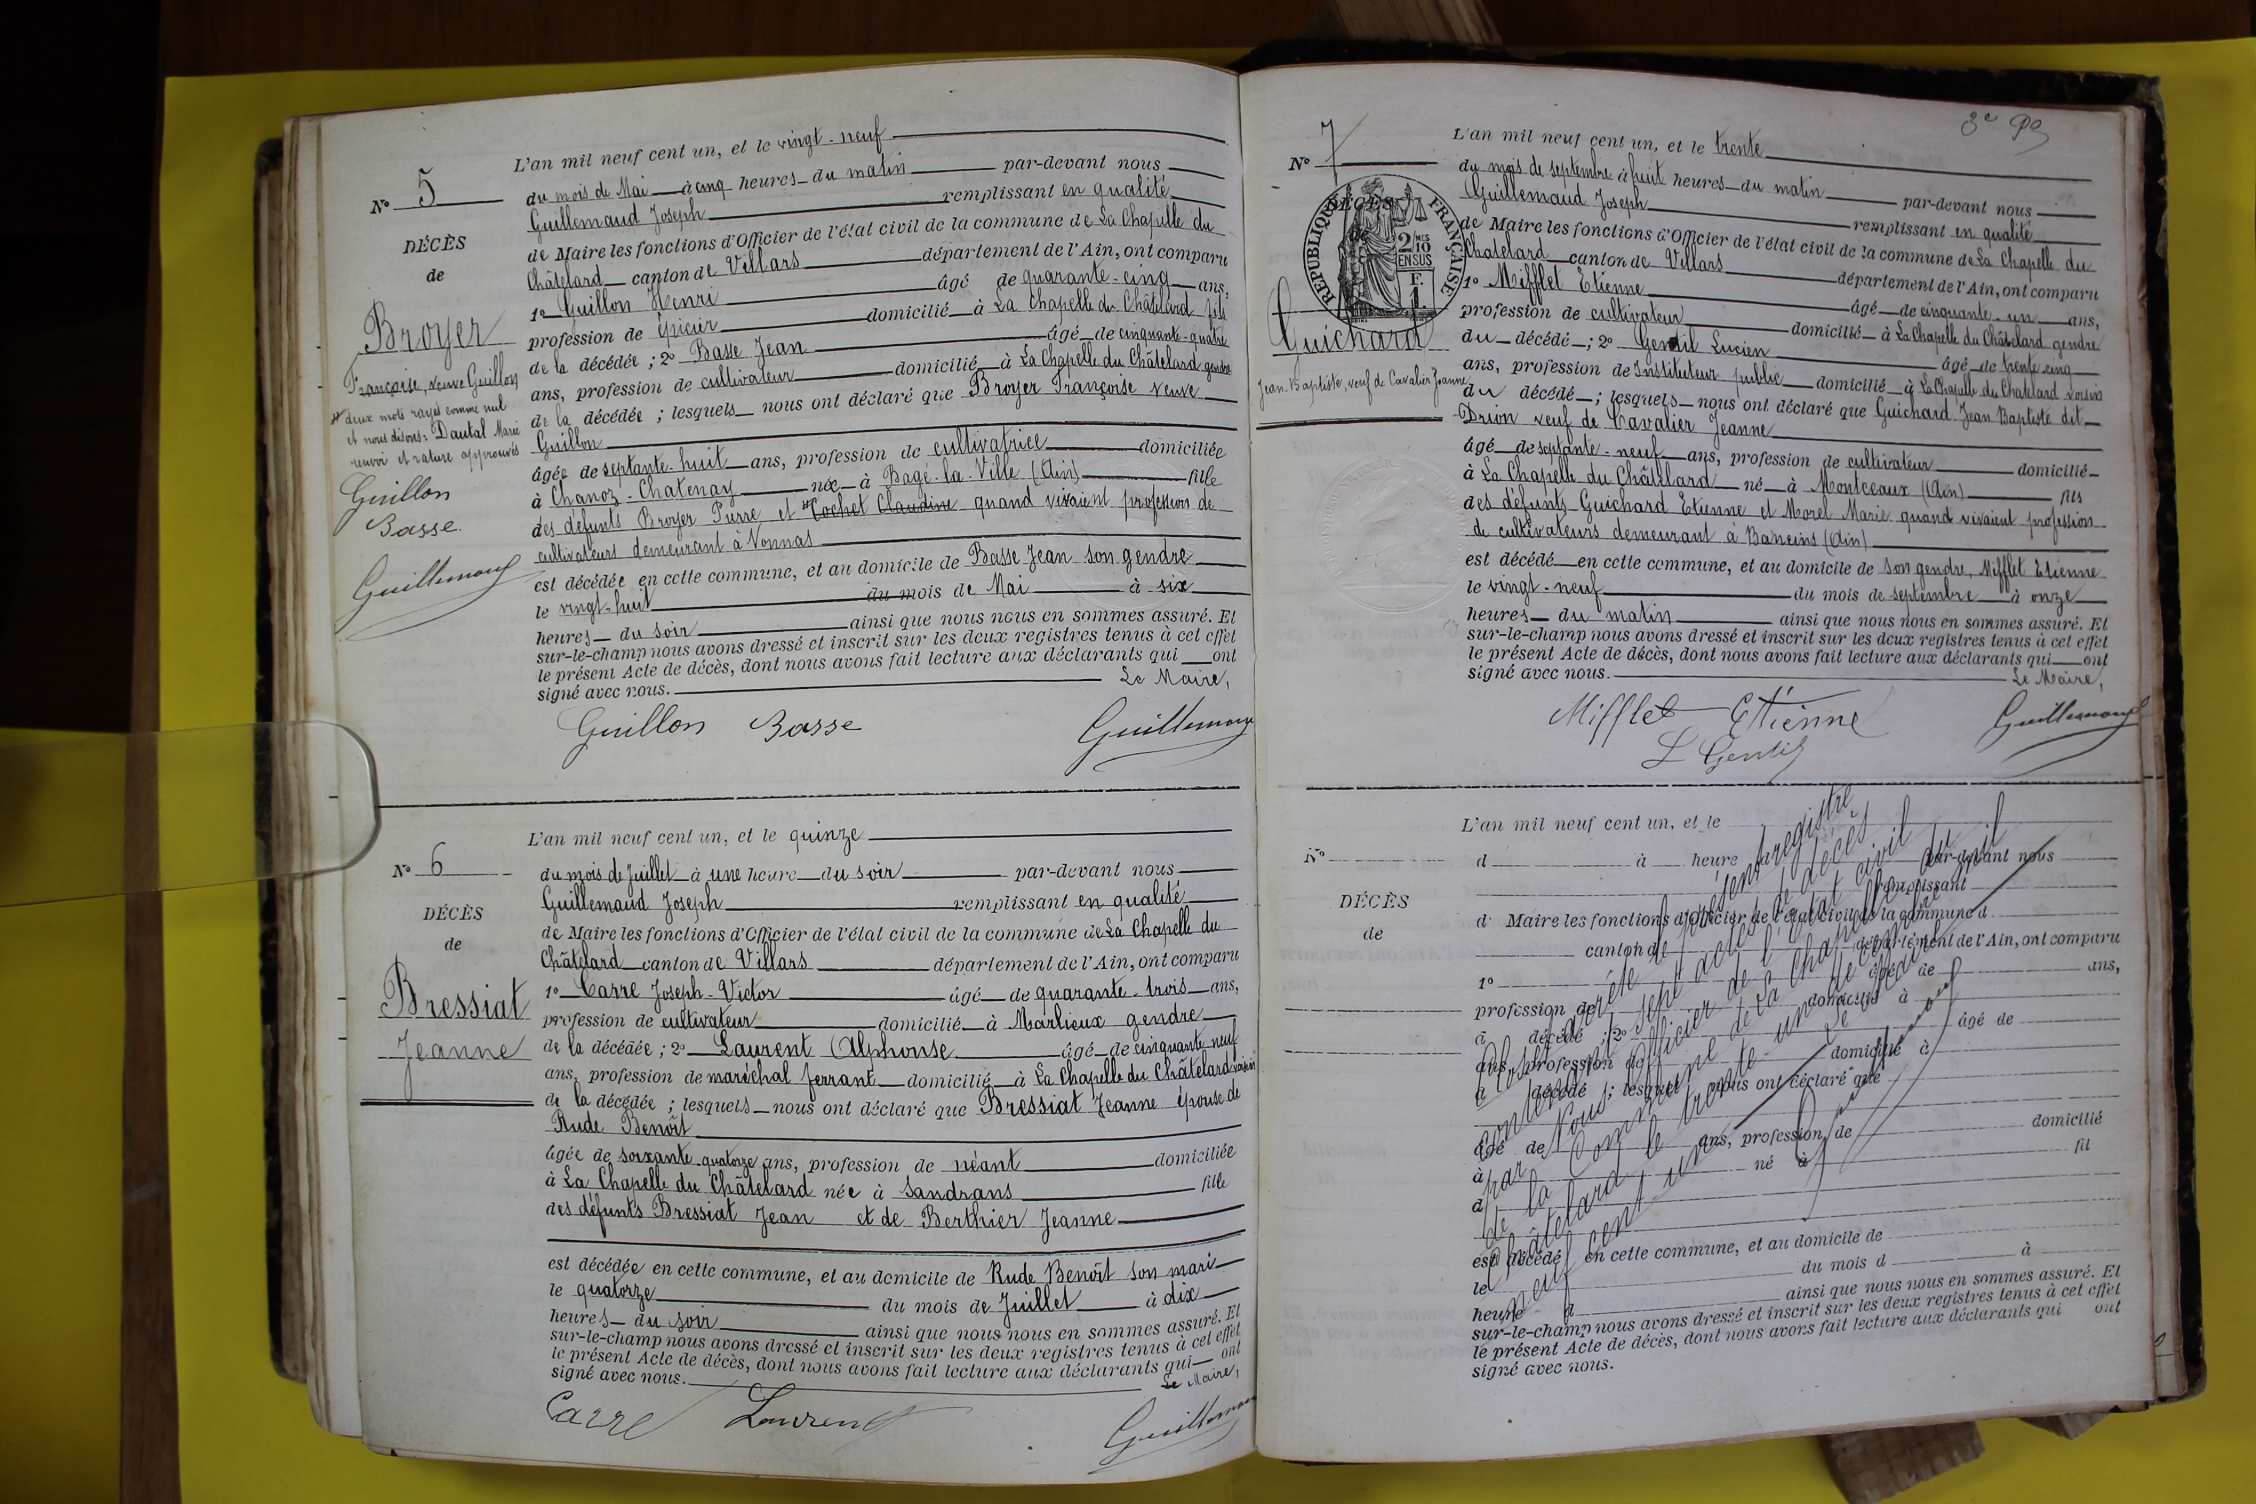 L'an mil neuf cent un, et le vingt-neuf
N° 5
du mois de Mai à cinq heures du matin par-devant nous
Guillemaud Joseph remplissant en qualité
DÉCÈS
de Maire les fonctions d'Officier de l'état civil de la commune de La Chapelle du
de
Châtelard canton de Villars département de l'Ain, ont comparu
1° Guillon Henri âgé de quarante-cinq ans,
Broyer
profession de épicier domicilié à La Chapelle du Châtelard fils
de la décédée ; 2° Basse Jean âgé de cinquante-quatre
Françoise, veuve Guillon
ans, profession de cultivateur domicilié à La Chapelle du Châtelard gendre
deux mots rayés comme nul
de la décédée ; lesquels nous ont déclaré que Broyer Françoise veuve
et nous disons: Dautal Marie
Guillon
renvoi et rature approuvés
âgée de septante-huit ans, profession de cultivatrice domiciliée
Guillon
à Chanoz-Chatenay née à Bagé-la-Ville (Ain) fille
Basse
des défunts Broyer Pierre et Cochet Claudine quand vivaient profession de
cultivateurs demeurant à Vonnas
Guillemaud
est décédée en cette commune, et au domicile de Basse Jean son gendre
le vingt-huit du mois de Mai à six
heures du soir ainsi que nous nous en sommes assuré. Et
sur-le-champ nous avons dressé et inscrit sur les deux registres tenus à cet effet
le présent Acte de décès, dont nous avons fait lecture aux déclarants qui ont
signé avec nous. Le Maire,
Guillon Basse Guillemaud
L'an mil neuf cent un, et le quinze
N° 6
du mois de Juillet à une heure du soir par-devant nous
Guillemaud Joseph remplissant en qualité
DÉCÈS
de Maire les fonctions d'Officier de l'état civil de la commune de La Chapelle du
de
Châtelard canton de Villars département de l'Ain, ont comparu
1° Carre Joseph-Victor âgé de quarante-trois ans,
Bressiat
profession de cultivateur domicilié à Marlieux gendre
Jeanne
de la décédée ; 2° Laurent Alphonse âgé de cinquante neuf
ans, profession de maréchal ferrant domicilié à La Chapelle du Châtelard voisin
de la décédée ; lesquels nous ont déclaré que Bressiat Jeanne épouse de
Rude Benoît
âgée de soixante-quatorze ans, profession de néant domiciliée
à La Chapelle du Châtelard née à Sandrans fille
des défunts Bressiat Jean et de Berthier Jeanne
est décédée en cette commune, et au domicile de Rude Benoît son mari
le quatorze du mois de Juillet à dix
heures du soir ainsi que nous nous en sommes assuré. Et
sur-le-champ nous avons dressé et inscrit sur les deux registres tenus à cet effet
le présent Acte de décès, dont nous avons fait lecture aux déclarants qui ont
signé avec nous. Le Maire,
Carre Laurent Guillemaud
L'an mil neuf cent un, et le trente
N° 7
du mois de septembre à huit heures du matin par-devant nous
Guillemaud Joseph remplissant en qualité
DÉCÈS
RÉPUBLIQUE FRANÇAISE
2/10 EN SUS
F. 1
de Maire les fonctions d'Officier de l'état civil de la commune de La Chapelle du
Chatelard canton de Villars département de l'Ain, ont comparu
1° Mifflet Etienne âgé de cinquante-un ans,
Guichard
profession de cultivateur domicilié à La Chapelle du Châtelard gendre
du décédé ; 2° Gentil Lucien âgé de trente cinq
Jean-Baptiste, veuf de Cavalier Jeanne
ans, profession de Instituteur public domicilié à La Chapelle du Chatelard voisin
du décédé ; lesquels nous ont déclaré que Guichard Jean Baptiste dit
Drion veuf de Cavalier Jeanne
âgé de septante-neuf ans, profession de cultivateur domicilié
à La Chapelle du Châtelard né à Montceaux (Ain) fils
des défunts Guichard Etienne et Morel Marie quand vivaient profession
de cultivateurs demeurant à Baneins (Ain)
est décédé en cette commune, et au domicile de son gendre, Mifflet Etienne
le vingt-neuf du mois de septembre à onze
heures du matin ainsi que nous nous en sommes assuré. Et
sur-le-champ nous avons dressé et inscrit sur les deux registres tenus à cet effet
le présent Acte de décès, dont nous avons fait lecture aux déclarants qui ont
signé avec nous. Le Maire,
Mifflet Etienne Guillemaud
L Gentil
L'an mil neuf cent un, et le
N° d à heure par-devant nous
remplissant
DÉCÈS
d Maire les fonctions d'Officier de l'état civil de la commune d
de
canton de département de l'Ain, ont comparu
1° âgé de ans,
profession de domicilié à
d décédé ; 2° âgé de
ans, profession de domicilié à
d décédé ; lesquels nous ont déclaré que
âgé de ans, profession de domicilié
à né à fil
d
est décédé en cette commune, et au domicile de
le du mois d à
heure d ainsi que nous nous en sommes assuré. Et
sur-le-champ nous avons dressé et inscrit sur les deux registres tenus à cet effet
le présent Acte de décès, dont nous avons fait lecture aux déclarants qui ont
signé avec nous.
Clos et arrêté le présent registre
contenant sept actes de décès
par Nous, Officier de l'Etat civil
de la Commune de La Chapelle du
Châtelard le trente-un décembre mil
neuf cent un Le Maire
Guillemaud